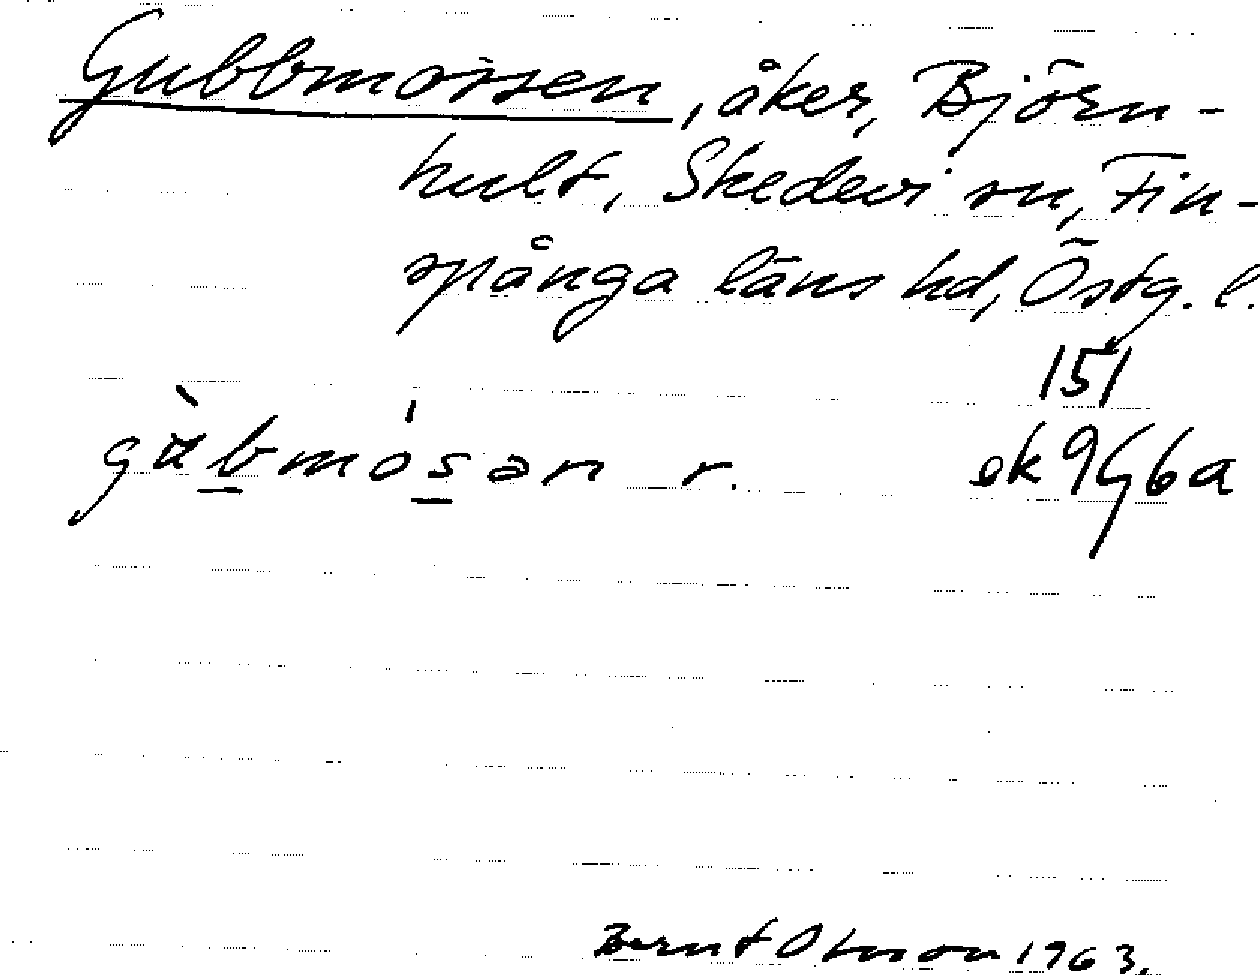 Gubbmossen, åker, Björn-
hult, Skedevi sn, Fin-
spånga läns hd, Östg. l.
151
ek 9G6a
r.
Bernt Olsson 1963.